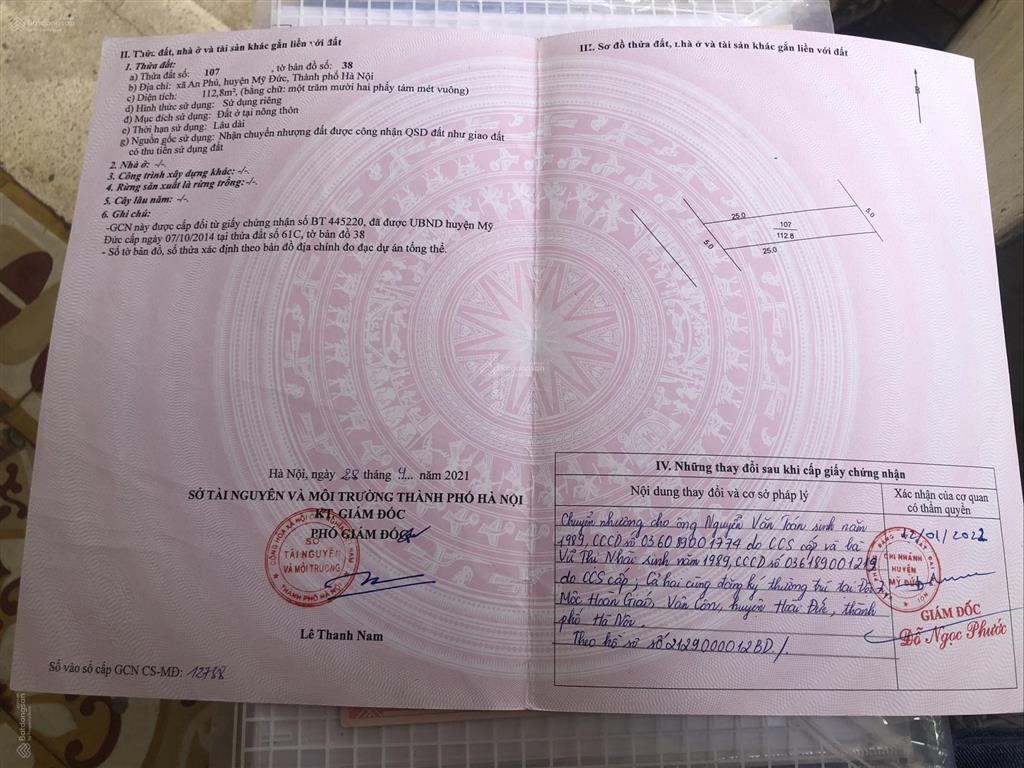 II. Thửa đất, nhà ở và tài sản khác gắn liền với đất
1. Thửa đất:
a) Thửa đất số: 107 , tờ bản đồ số: 38
b) Địa chỉ: xã An Phú, huyện Mỹ Đức, Thành phố Hà Nội
c) Diện tích: 112,8m², (bằng chữ: một trăm mười hai phẩy tám mét vuông)
d) Hình thức sử dụng: Sử dụng riêng
đ) Mục đích sử dụng: Đất ở tại nông thôn
e) Thời hạn sử dụng: Lâu dài
g) Nguồn gốc sử dụng: Nhận chuyển nhượng đất được công nhận QSD đất như giao đất
có thu tiền sử dụng đất
2. Nhà ở: -/-.
3. Công trình xây dựng khác: -/-.
4. Rừng sản xuất là rừng trồng: -/-.
5. Cây lâu năm: -/-.
6. Ghi chú:
-GCN này được cấp đổi từ giấy chứng nhận số BT 445220, đã được UBND huyện Mỹ
Đức cấp ngày 07/10/2014 tại thửa đất số 61C, tờ bản đồ 38
- Số tờ bản đồ, số thửa xác định theo bản đồ địa chính đo đạc dự án tổng thể.
Hà Nội, ngày 28 tháng 9... năm 2021
SỞ TÀI NGUYÊN VÀ MÔI TRƯỜNG THÀNH PHỐ HÀ NỘI
KT. GIÁM ĐỐC
PHÓ GIÁM ĐỐC
CỘNG HÒA XÃ HỘI CHỦ NGHĨA VIỆT NAM
SỞ
TÀI NGUYÊN
VÀ MÔI TRƯỜNG
THÀNH PHỐ HÀ NỘI
Lê Thanh Nam
Số vào sổ cấp GCN CS-MĐ: 12738
III. Sơ đồ thửa đất, nhà ở và tài sản khác gắn liền với đất
B
25.0
5.0
107
112.8
5.0
25.0
IV. Những thay đổi sau khi cấp giấy chứng nhận
Nội dung thay đổi và cơ sở pháp lý
Xác nhận của cơ quan
có thẩm quyền
Chuyển nhượng cho ông Nguyễn Văn Toàn sinh năm
1989, CCCD số 036089001774 do CCS cấp và bà
Vũ Thị Nhài sinh năm 1989, CCCD số 036189001219
do CCS cấp; Cả hai cùng đăng ký thường trú tại
Mộc Hoàn Giáo, Vân Côn, huyện Hoài Đức, thành
phố Hà Nội.
Theo hồ sơ số 2129000012BD/.
12/01/2022
CHI NHÁNH
HUYỆN
MỸ ĐỨC
GIÁM ĐỐC
Đỗ Ngọc Phước
Batdongsan